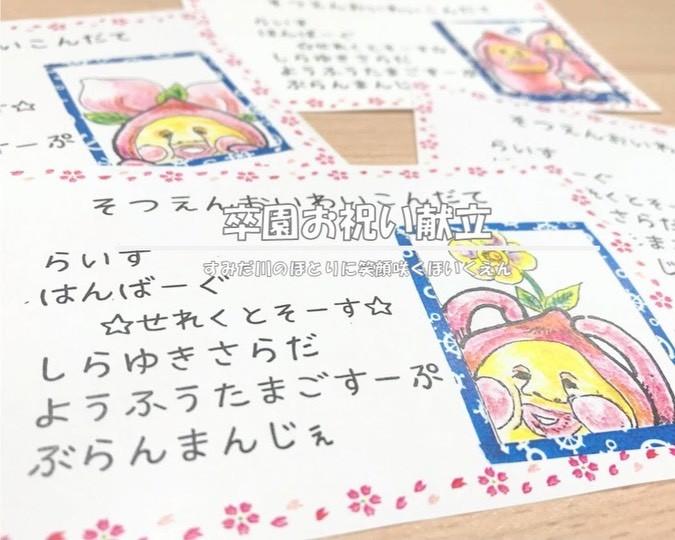 いこんだて
☆
すーぷ
そつえんおいわいこんだて
らいす
はんばーぐ
しらゆきさらだ
ようふうたまごすーぷ
ぶらんまんじ
らいす
さらだ
卒園お祝い献立
すみだ川のほとりに笑顔咲くほいくえん
そつえんおいわいこんだて
らいす
はんばーぐ
☆せれくとそーす☆
しらゆきさらだ
ようふうたまごすーぷ
ぶらんまんじぇ